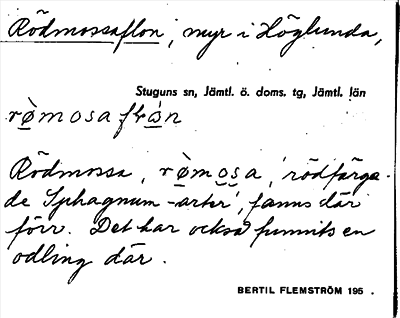 Rödmossaflon, myr i Höglunda,
Stuguns sn, Jämtl. ö. doms. tg, Jämtl. län
rø̀mosaflɷ́n
Rödmossa, rø̀mo̯s̯a, 'rödfärga-
de Sphagnum-arter', fanns där
förr. Det har också funnits en
odling där.
BERTIL FLEMSTRÖM 195 .